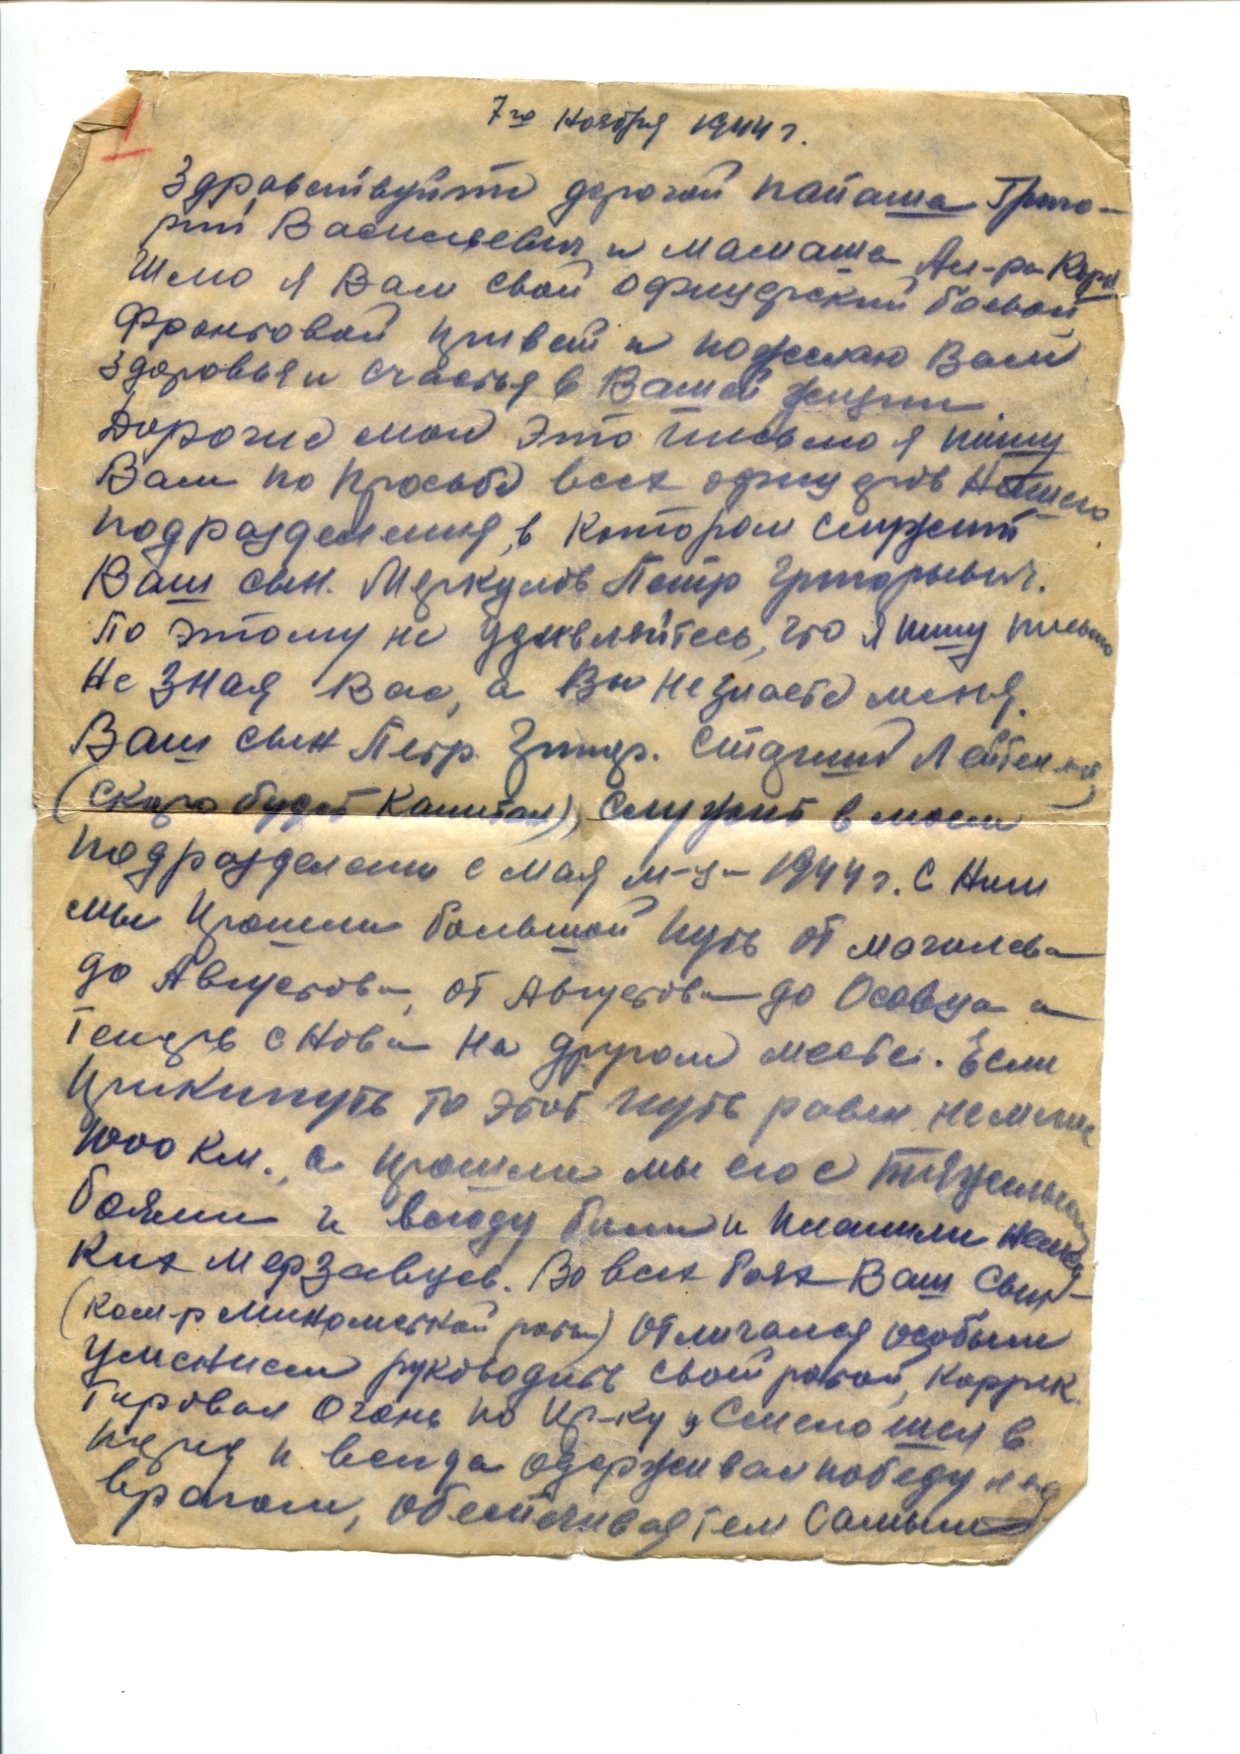 7го ноября 1944 г.
Здравствуйте дорогой папаша Григо-
рий Васильевич и мамаша Ал-ра
Шлю я Вам свой офицерский боевой
фронтовой привет и пожелаю Вам
здоровья и счастья в Вашей жизни.
Дорогие мои это письмо я пишу
Вам по просьбе всех офицеров нашего
подразделения, в котором служит
Ваш сын. Меркулов Петр Григорьевич.
По этому не удивляйтесь, что я пишу письмо
не зная Вас, а Вы не знаете меня.
Ваш сын Петр Григор. старший Лейтенант
(скоро будет капитан), служит в моем
подразделении с мая м-ца 1944 г. С ним
мы прошли большой путь от Могилева
до Августова, от Августова до Осовца а
теперь снова на другом месте. Если
прикинуть то этот путь равен не менее
1000 км., а прошли мы его с тяжелыми
боями и всюду били и гнали немец-
ких мерзавцев. Во всех боях Ваш сын-
(ком-р минометной роты) отличался особым
умением руководить своей ротой, коррек.
тировал огонь по пр-ку и смело шел в
перед и всегда одерживал победу над
врагом, обеспечивая тем самым